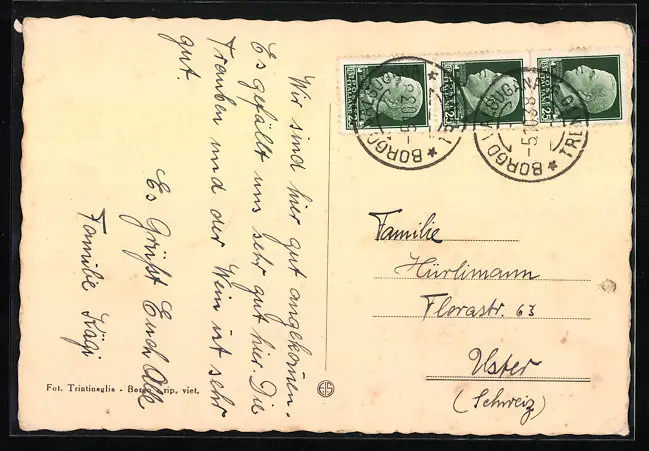 Wir sind hier gut angekommen.
Es gefällt uns sehr gut hier. Die
Trauben und der Wein ist sehr
gut.
Es Grüßt Euch Alle
Familie Kägi
Familie
Hürlimann
Florastr. 63
Uster
(Schweiz)
Fot. Trintinaglia - Borgo rip. viet.
BORGO VALSUGANA
TRENTO
-5.10.38